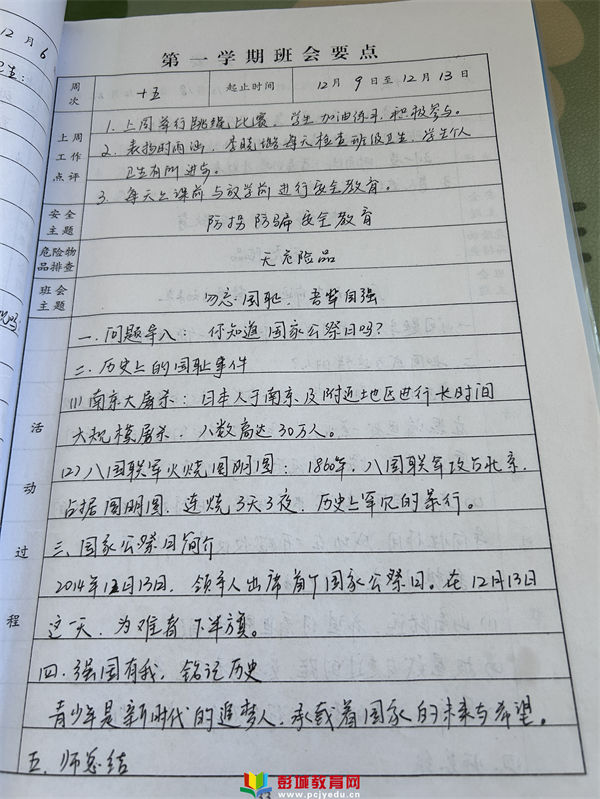 12月6
第一学期班会要点
周次 十五 起止时间 12月9日至12月13日
上周工作点评
1. 上周举行跳绳比赛，学生加油练习，积极参与。
2. 表扬时雨涵、李 每天检查班级卫生，学生个
卫生有所进步。
3. 每天上课前与放学前进行安全教育。
安全主题 防拐防骗安全教育
危险物品排查 无危险品
班会主题 勿忘国耻，吾辈自强
活动过程
一. 问题导入： 你知道国家公祭日吗？
二. 历史上的国耻事件
(1) 南京大屠杀：日本人于南京及附近地区进行长时间
大规模屠杀，人数高达30万人。
(2) 八国联军火烧圆明园：1860年，八国联军攻占北京，
占据圆明园，连烧3天3夜，历史上罕见的暴行。
三. 国家公祭日简介
2014年12月13日，领导人出席首个国家公祭日。在12月13日
这一天，为难者下半旗。
四. 强国有我，铭记历史
青少年是新时代的追梦人，承载着国家的未来与希望。
五. 师总结
彭城教育网
www.pcjyedu.cn